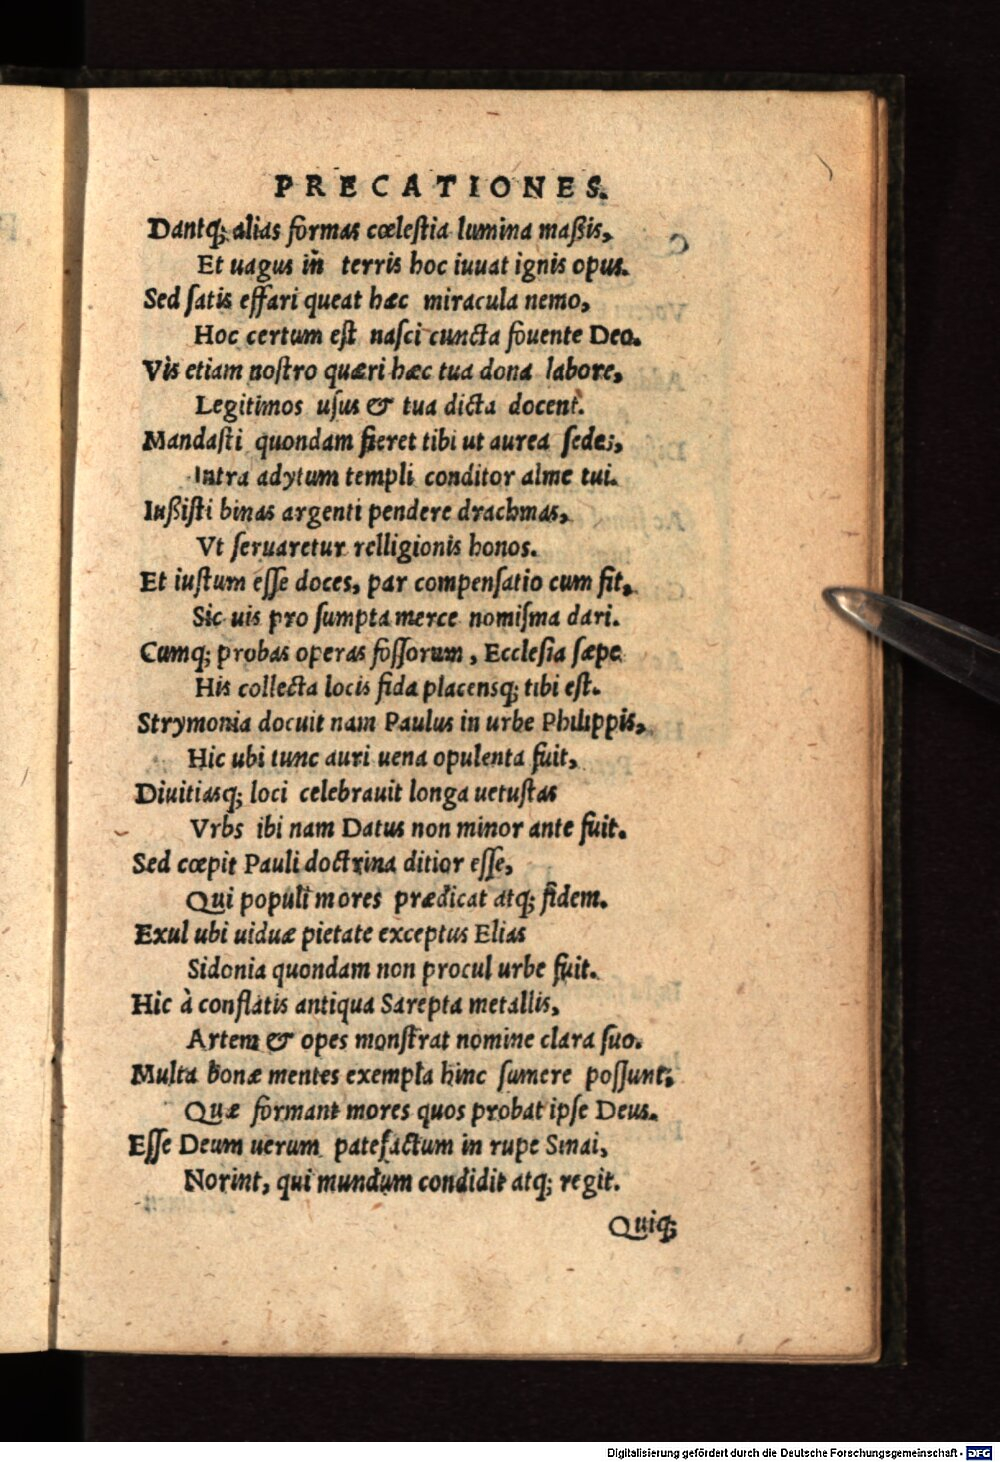 PRECATIONES.
Dantq; alias formas cœlestia lumina maßis,
Et uagus in terris hoc iuuat ignis opus.
Sed satis effari queat hæc miracula nemo,
Hoc certum est nasci cuncta fouente Deo.
Vis etiam nostro quæri hæc tua dona labore,
Legitimos usus & tua dicta docent.
Mandasti quondam fieret tibi ut aurea sedes,
Intra adytum templi conditor alme tui.
Iußisti binas argenti pendere drachmas,
Vt seruaretur relligionis honos.
Et iustum esse doces, par compensatio cum sit,
Sic uis pro sumpta merce nomisma dari.
Cumq; probas operas fossorum, Ecclesia sæpe
His collecta locis fida placensq; tibi est.
Strymonia docuit nam Paulus in urbe Philippis,
Hic ubi tunc auri uena opulenta fuit,
Diuitiasq; loci celebrauit longa uetustas
Vrbs ibi nam Datus non minor ante fuit.
Sed cœpit Pauli doctrina ditior esse,
Qui populi mores prædicat atq; fidem.
Exul ubi uiduæ pietate exceptus Elias
Sidonia quondam non procul urbe fuit.
Hic à conflatis antiqua Sarepta metallis,
Artem & opes monstrat nomine clara suo.
Multa bonæ mentes exempla hinc sumere possunt,
Quæ formant mores quos probat ipse Deus.
Esse Deum uerum patefactum in rupe Sinai,
Norint, qui mundum condidit atq; regit.
Quiq;
Digitalisierung gefördert durch die Deutsche Forschungsgemeinschaft - DFG